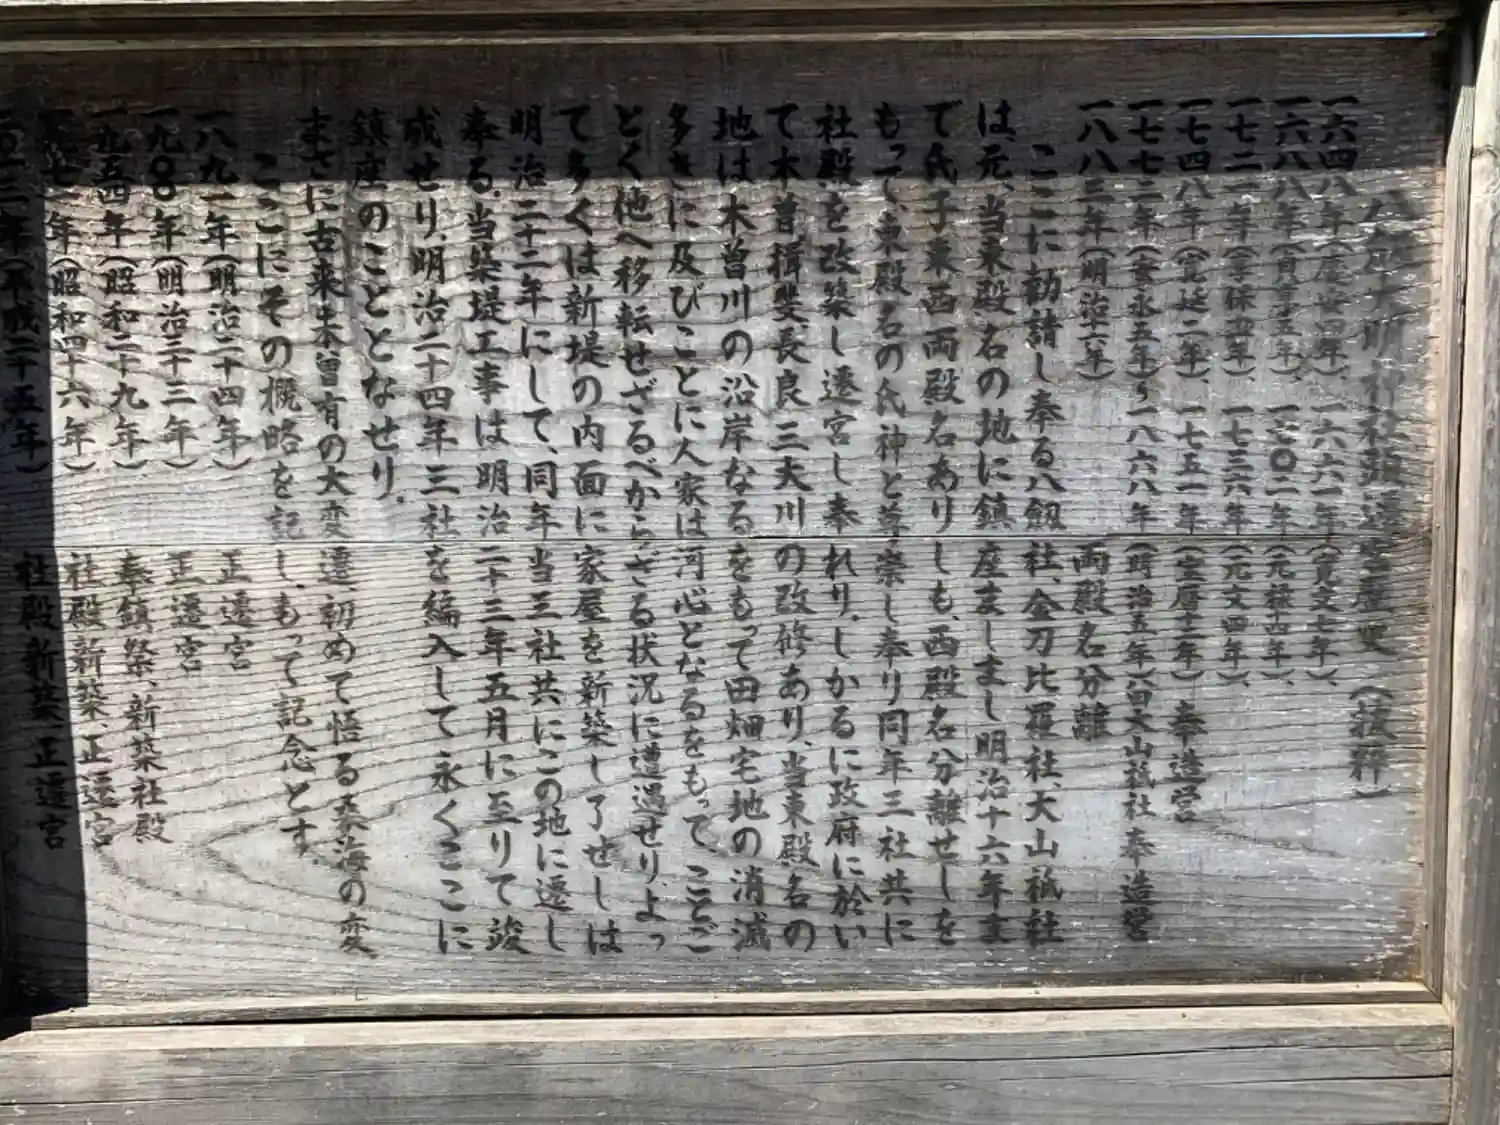 八剱大明神社殿遷宮歴史(抜粋)
一六四八年(慶安四年)、一六六一年(寛文七年)、
一六八八年(貞享五年)、一七〇二年(元禄十四年)、
一七二一年(享保五年)、一七三六年(元文四年)、
一七四八年(寛延二年)、一七五一年(宝暦十二年)奉造営
一七七二年(安永五年)~一八六八年(明治五年)大山祗社奉造営
一八八三年(明治十六年)両殿名分離
ここに勧請し奉る八剱社、金刀比羅社、大山祗社
は元、当東殿名の地に鎮座ましまし明治十六年ま
で氏子東西両殿名ありしも、西殿名分離せしを
もって、東殿名の氏神と尊崇し奉り同年三社共に
社殿を改築し遷宮し奉れり、しかるに政府に於い
て木曽揖斐、長良、三大川の改修あり、当東殿名の
地は木曽川の沿岸なるをもって田畑宅地の消滅
多きに及びことに人家は河心となるをもって、ことご
とく他へ移転せざるべからざる状況に遭遇せり、よっ
て多くは新堤の内面に家屋を新築し了せしは
明治二十二年にして、同年当三社共にこの地に遷し
奉る、当築堤工事は明治二十三年五月に至りて竣
成せり、明治二十四年三社を編入して永くここに
鎮座のこととなせり.
まさに古来未曽有の大変遷、初めて悟る桑海の変、
ここにその概略を記し、もって記念とす.
一八九一年(明治二十四年)正遷宮
一九〇〇年(明治三十三年)正遷宮
一九五四年(昭和二十九年)奉鎮祭、新築社殿
一九七一年(昭和四十六年)社殿新築、正遷宮
二〇一三年(平成二十五年)社殿新築、正遷宮